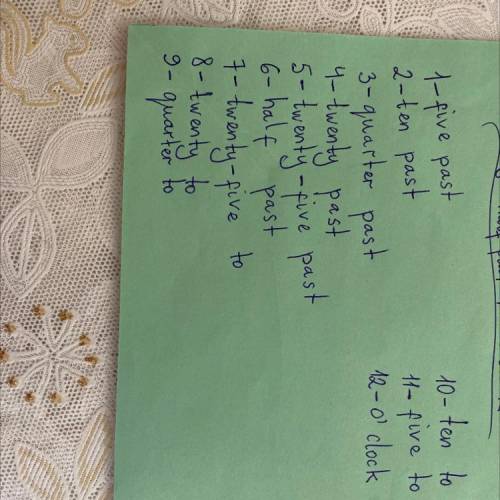 1-five past
2-ten past
3-quarter past
4-twenty past
5-twenty-five past
6-half past
7-twenty-five to
8-twenty to
9-quarter to
10-ten to
11-five to
12-o'clock